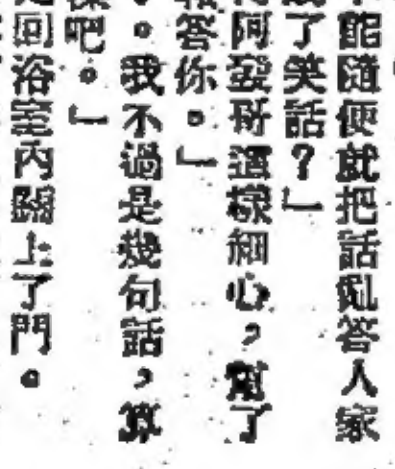 能隨便就把話亂答人家
了笑話？」
阿發哥這樣細心，幫了
答你。」
。我不過是幾句話，算
吧。」
回浴室內關上了門。